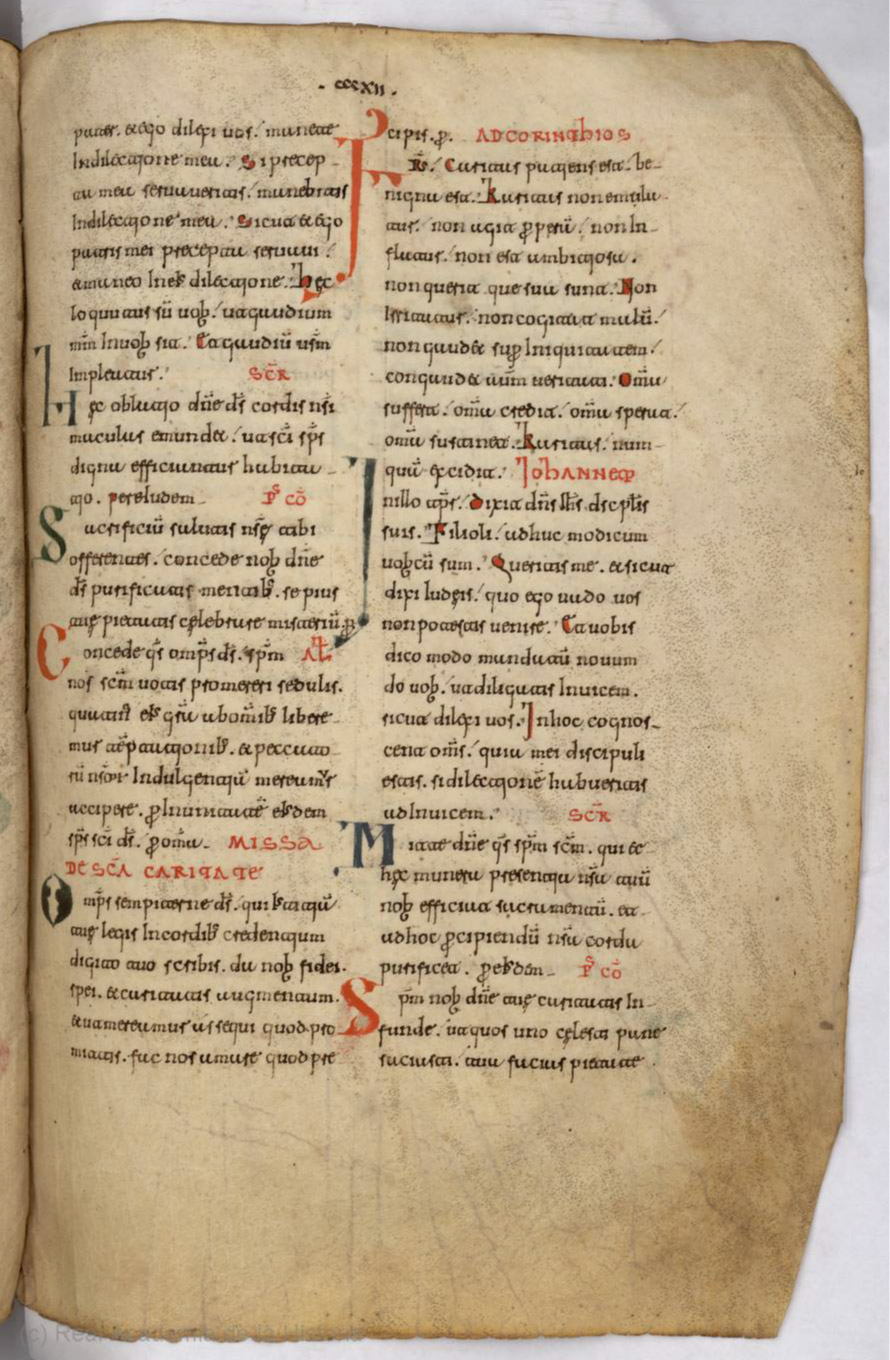 . ccccxii .
pater. & ego dilexi uos. manete
In dilectione mea. Si precep
ta mea seruaueritis. manebitis
In dilectione mea. Sicut & ego
patris mei precepta seruaui.
& maneo In ei dilectione. hec
loquutus sū uob. ut gaudium
mm̄ In uob sit. Et gaudiū usm̄
Impleatur. SCR̄
Hec oblatio dn̄e ds̄ cordis nr̄i
maculas emundet. ut sc̄i sp̄s
digna efficiamur habita
tio. per eiusdem PS CŌ
Sacrificiū salutaris nr̄e tibi
offerentes. concede nob dn̄e
ds̄ purificatis mentib. sepius
tue pietatis celebrare misteriū. p
Concede qs̄ omp̄s ds̄. sp̄m AL
nos sc̄m uotis promereri sedulis.
grā ab omīb libere
mur tēptationib. & peccato
rū nr̄or Indulgentiā mereamur
accipere. p In unitatē eiusdem
sp̄s sc̄i ds̄. p omīa MISSA
DE SCĀ CARITATE
Omp̄s sempiterne ds̄. qui
tue legis In cordib credentium
digito tuo scribis. da nob fidei.
spei. & caritatis augmentum.
& ut mereamur assequi quod pro
mittis. fac nos amare quod pre
cipis. p. AD CORINTHIOS
FR̄. Caritas patiens est. be
nigna est. Karitas non emula
tur. non agit perperā. non In
flatur. non est ambitiosa.
non querit que sua sunt. Non
Irritatur. non cogitat malū.
non gaud& sup Iniquitatem.
congaud& aūm ueritati. Omīa
suffert. omīa credit. omīa sperat.
omīa sustinet. Karitas. num
quā excidit. IOHANNEM
In illo tp̄r. Dixit dn̄s Ihs̄ discplis
suis. Filioli. adhuc modicum
uobcū sum. Queritis me. & sicut
dixi Iudeis. quo ego uado uos
non potestis uenire. Et uobis
dico modo mandatū nouum
do uob. ut diligatis Inuicem.
sicut dilexi uos. In hoc cognos
cent oms̄. quia mei discipuli
estis. si dilectionē habueritis
ad Inuicem. SCR̄
Mitte dn̄e qs̄ sp̄m sc̄m. qui &
hec munera presentia nr̄a tuū
nob efficiat sacramentū. et
ad hoc percipiendū nr̄a corda
purificet. p eiusdem PS CŌ
Sp̄m nob dn̄e tue caritatis In
funde. ut quos uno celesti pane
saciasti. tua facias pietate